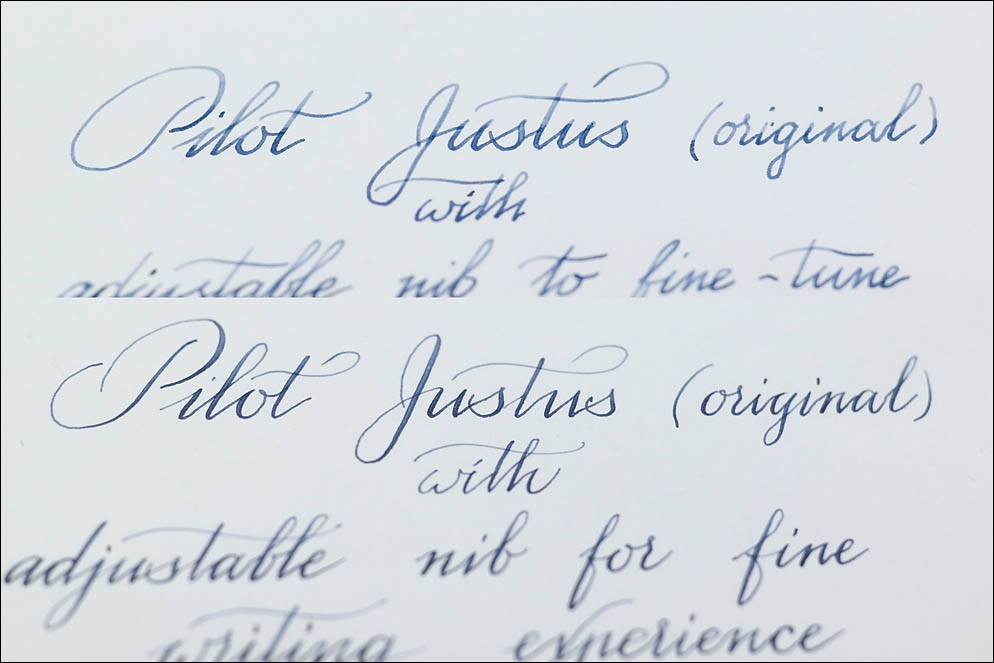 Pilot Justus (original)
with
adjustable nib to fine-tune
Pilot Justus (original)
with
adjustable nib for fine
writing experience